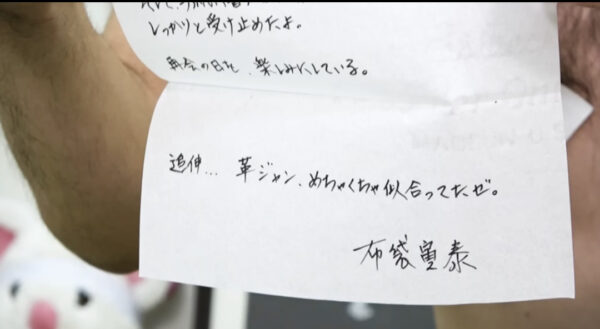 しっかりと受け止めたよ。
再会の日を、楽しみにしている。
追伸… 革ジャン、めちゃくちゃ似合ってたぜ。
布袋寅泰